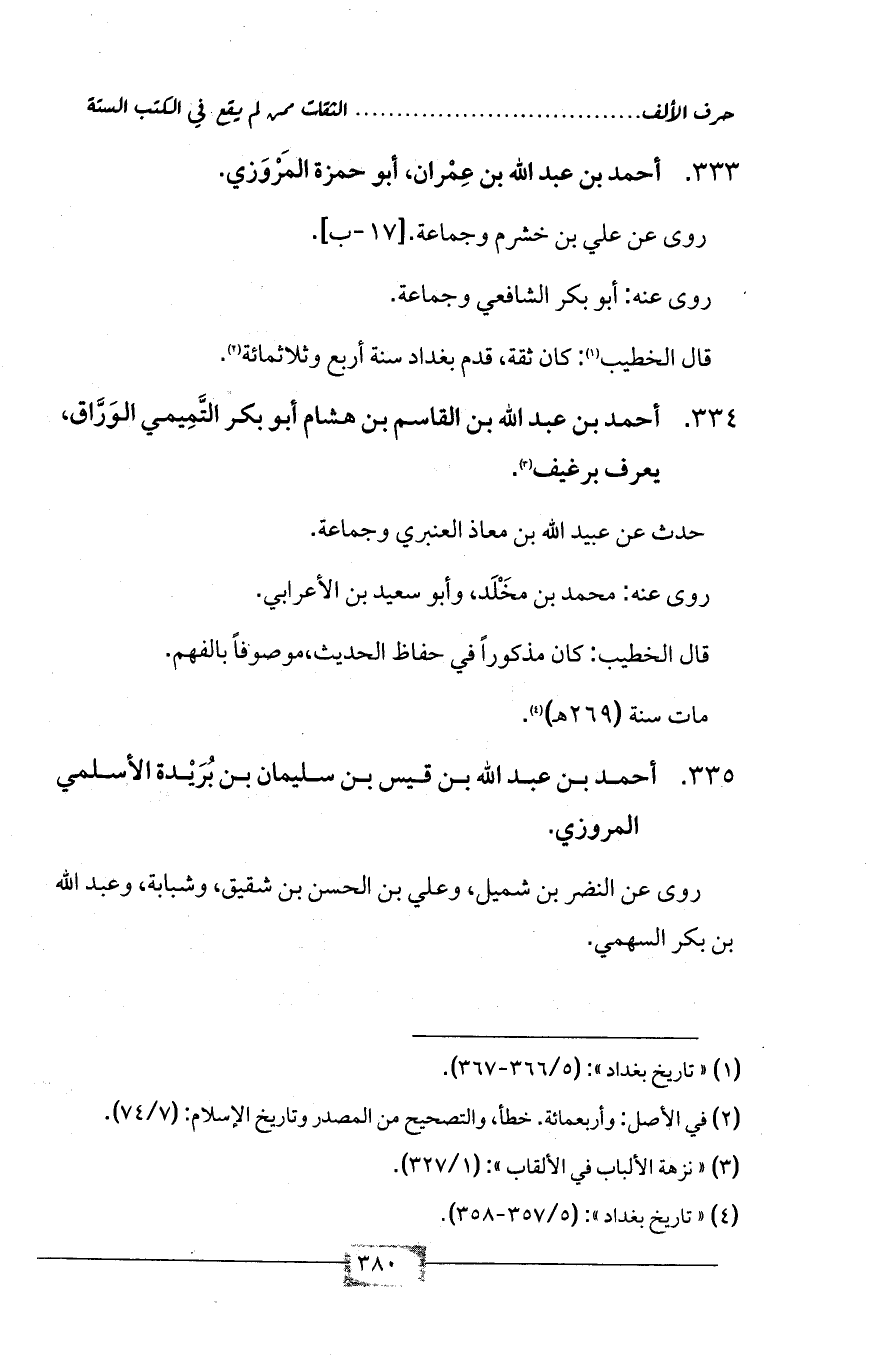 حرف الألف.................................. الثقات ممن لم يقع في الكتب الستة
٣٣٣. أحمد بن عبد الله بن عِمْران، أبو حمزة المَرْوَزي.
روى عن علي بن خشرم وجماعة.[١٧-ب].
روى عنه: أبو بكر الشافعي وجماعة.
قال الخطيب(١): كان ثقة، قدم بغداد سنة أربع وثلاثمائة(٢).
٣٣٤. أحمد بن عبد الله بن القاسم بن هشام أبو بكر التَّمِيمي الوَرَّاق،
يعرف برغيف(٣).
حدث عن عبيد الله بن معاذ العنبري وجماعة.
روى عنه: محمد بن مخْلَد، وأبو سعيد بن الأعرابي.
قال الخطيب: كان مذكوراً في حفاظ الحديث،موصوفاً بالفهم.
مات سنة (٢٦٩هـ)(٤).
٣٣٥. أحمد بن عبد الله بن قيس بن سليمان بن بُرَيْدة الأسلمي
المروزي.
روى عن النضر بن شميل، وعلي بن الحسن بن شقيق، وشبابة، وعبد الله
بن بكر السهمي.
(١) « تاريخ بغداد »: (٣٦٦/٥-٣٦٧).
(٢) في الأصل: وأربعمائة. خطأ، والتصحيح من المصدر وتاريخ الإسلام: (٧٤/٧).
(٣) « نزهة الألباب في الألقاب »: (٣٢٧/١).
(٤) « تاريخ بغداد »: (٣٥٧/٥-٣٥٨).
٣٨٠